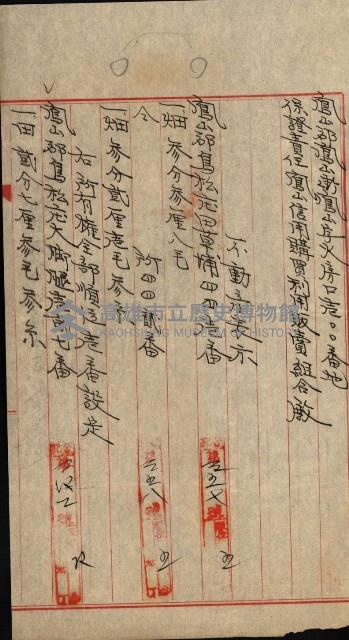 鳳山郡鳳山街鳳山丘火房口壱〇〇番地
保證責任鳳山信用購買利用販賣組合殿
不動産表示
鳳山郡鳥松庄田草埔四四番
一畑 参分参厘八毛
仝 所四四貳番
一畑 参分貳厘壱毛参糸
右所有權全部順位壱番設定
鳳山郡鳥松庄大脚腿壱貳七番
一田 貳分七厘参毛参糸
高雄市立歷史博物館
KAOHSIUNG MUSEUM OF HISTORY